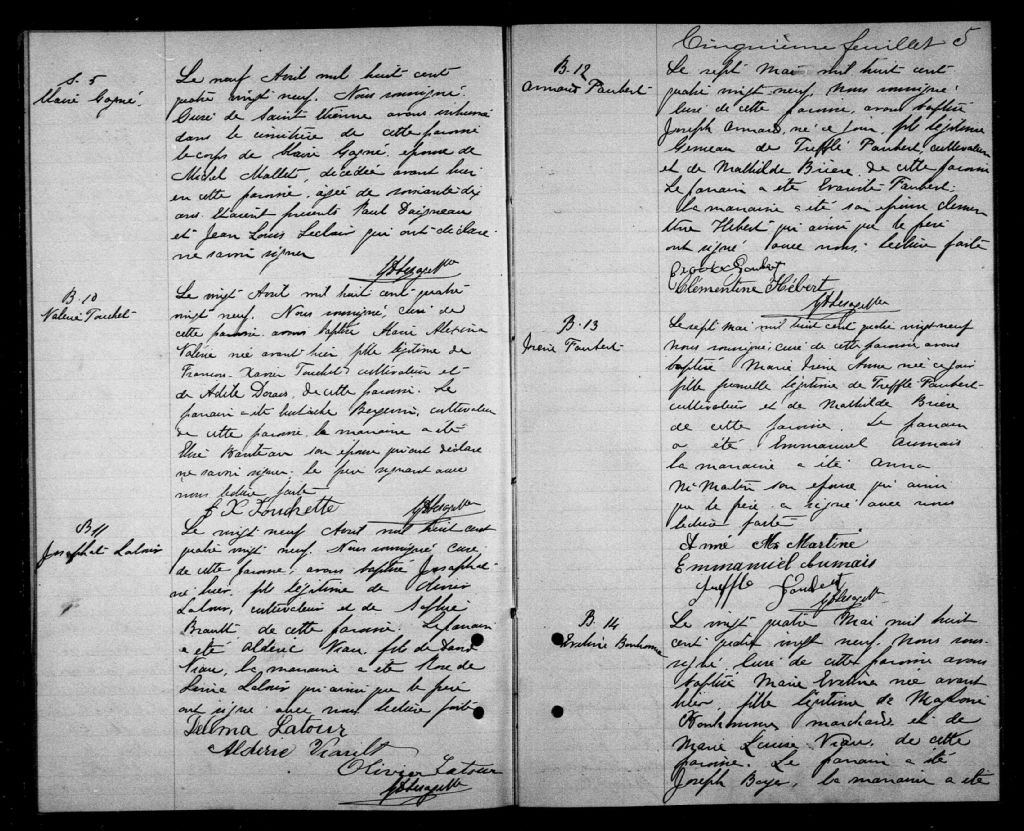 S. 5
Marie Gagné.
Le neuf Avril mil huit cent
quatre vingt neuf. Nous soussigné
Curé de Sainte Etienne avons inhumé
dans le cimetière de cette paroisse
le corps de Marie Gagné, épouse de
Michel Mallet, décédée avant hier
en cette paroisse, agée de soixante dix
ans. Etaient présents Paul Daigneau
et Jean Louis Leclair qui ont déclaré
ne savoir signer
B. 10
Valérie Touchet
Le vingt Avril mil huit cent quatre
vingt neuf. Nous soussigné, curé de
cette paroisse avons baptisé Marie Alexina
Valérie née avant hier fille légitime de
François-Xavier Touchet cultivateur et
de de cette paroisse. Le
parrain a été Bergevin, cultivateur
de cette paroisse, la marraine a été
son épouse qui ont déclaré
ne savoir signer, le père signant avec
nous lecture faite
F X Touchette
B 11
Josaphat Latour
Le vingt neuf Avril mil huit cent
quatre vingt neuf. Nous soussigné, curé
de cette paroisse, avons baptisé Josaphat
né hier, fils légitime de Olivier
Latour, cultivateur et de Sophie
Brault de cette paroisse. Le parrain
a été Alderic Viau, fils de David
Viau, la marraine a été Rose de
Lima Latour qui ainsi que le père
ont signé avec nous lecture faite
Delima Latour
Alderic Viault
Olivier Latour
Cinquième feuillet 5
B. 12
Armand Faubert
Le sept Mai mil huit cent
quatre vingt neuf, nous soussigné
Curé de cette paroisse, avons baptisé
Joseph Armand, né ce jour, fils légitime
Gemeau de Trefflé Faubert cultivateur
et de Mathilde Brière de cette paroisse
Le parrain a été Evariste Faubert.
La marraine a été son épouse Clemen
tine Hébert qui ainsi que le père
ont signé avec nous. Lecture faite
Clémentine Hébert
B. 13
Irène Faubert
Le sept mai mil huit cent quatre vingt neuf
nous soussigné curé de cette paroisse avons
baptisé Marie Irène Anna née ce jour
fille jumelle légitime de Treffle Faubert
cultivateur et de Mathilde Brière
de cette paroisse. Le parrain
a été Emmanuel Aumais
la marraine a été Anna
McMartin son épouse qui ainsi
que le père a signé avec nous
lecture faite
Anné Mc Martine
Emmanuel Aumais
Treffle Faubert
B. 14
Eveline Bonhomme
Le vingt quatre Mai mil huit
cent quatre vingt neuf. Nous sous-
signé, Curé de cette paroisse avons
baptisé Marie Eveline née avant
hier, fille légitime de
Bonhomme marchand et de
Marie Louise Viau, de cette
paroisse. Le parrain a été
Joseph Boyer, la marraine a été